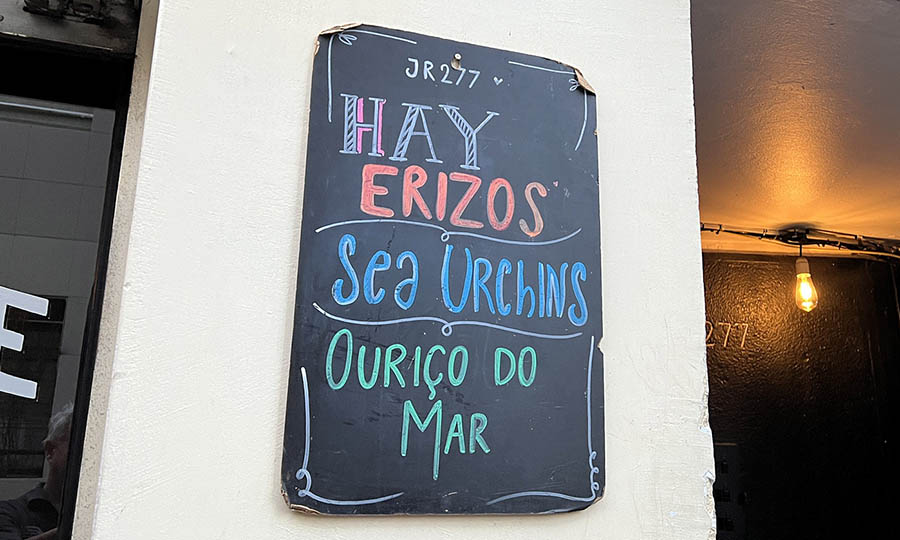 JR277
HAY
ERIZOS
Sea Urchins
Ouriço do
Mar
277